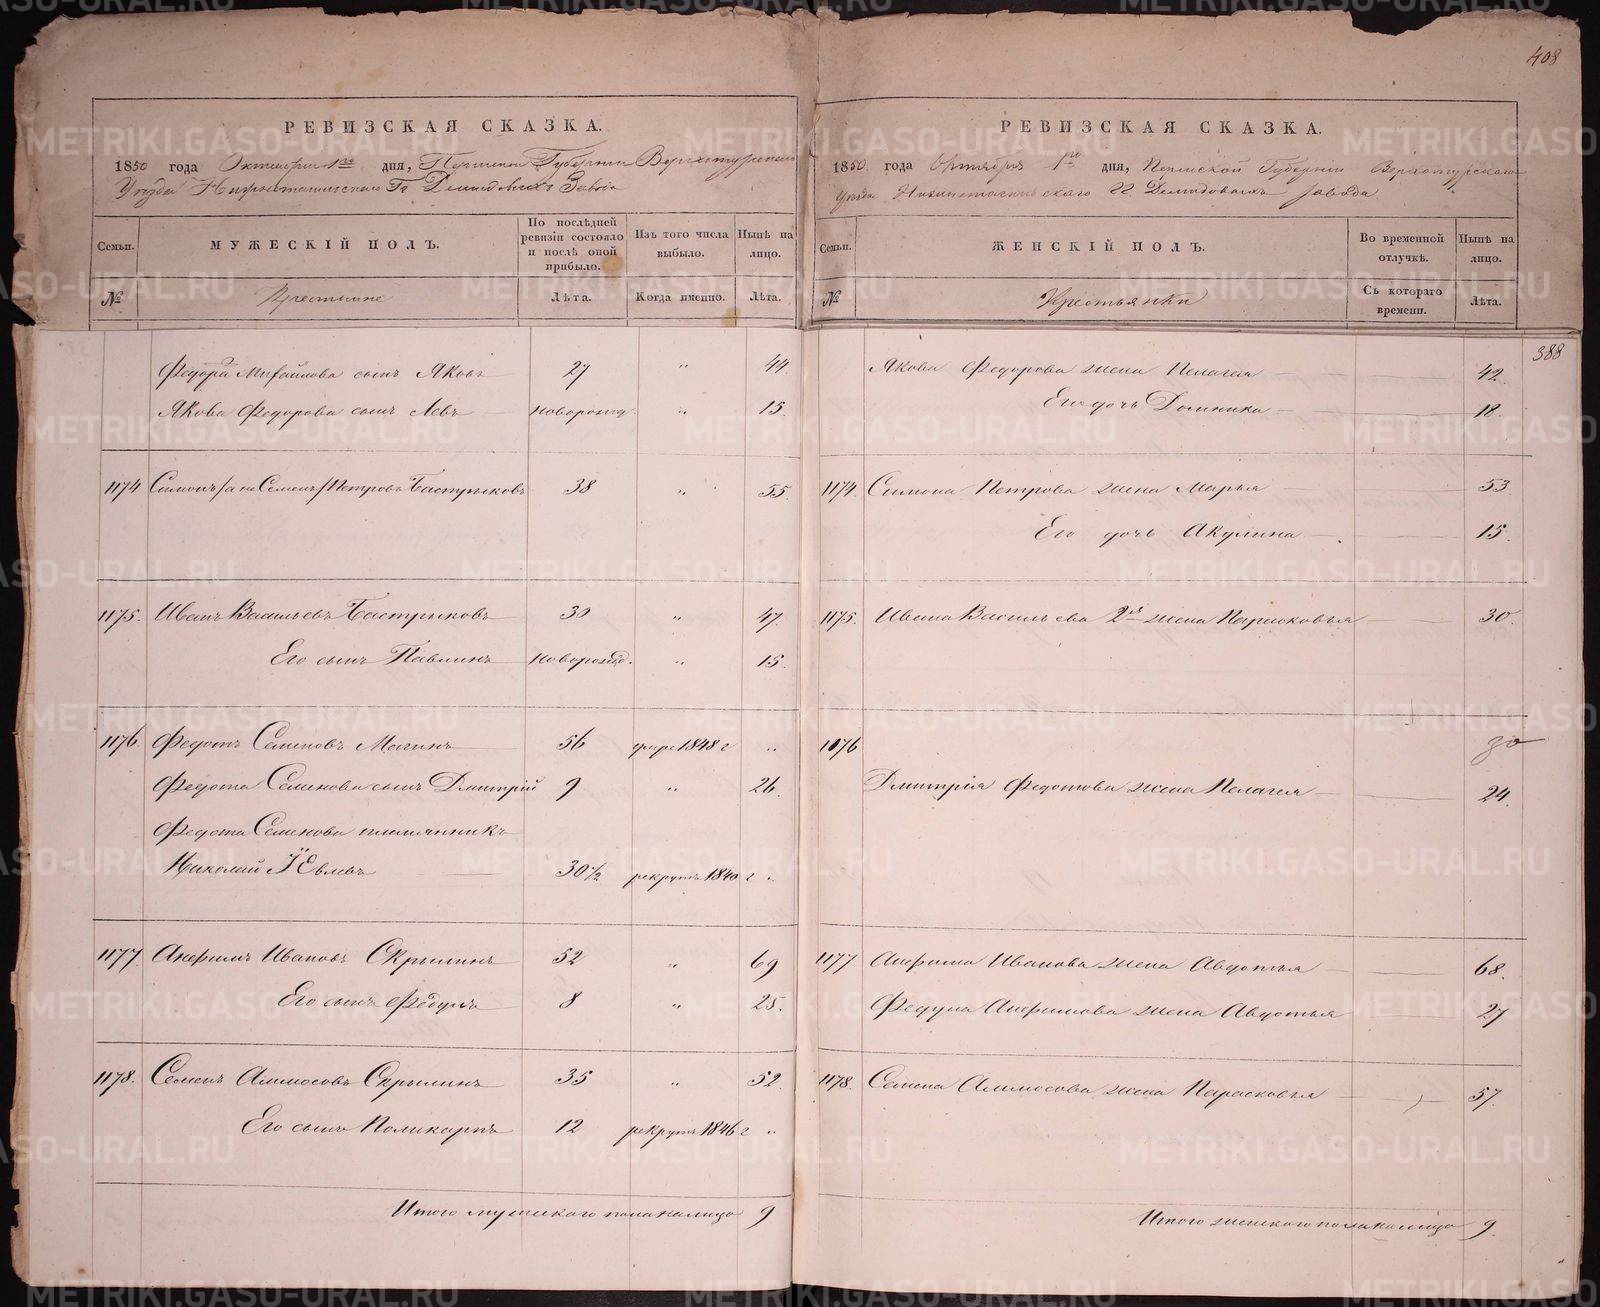 408
РЕВИЗСКАЯ СКАЗКА.
1850 года Октября 1го дня, Пермской Губернии Верхотурскаго
Уезда Нижнетагильскаго Гг Демидовыхъ Завода
Семьи.
МУЖЕСКІЙ ПОЛЪ.
По послѣдней ревизіи состояло и послѣ оной прибыло.
Изъ того числа выбыло.
Нынѣ на лицо.
№
Крестьяне
Лѣта.
Когда именно.
Лѣта.
Федора Михайлова сынъ Яковъ 27 " 44
Якова Федорова сынъ Левъ новорожд. " 15.
1174 Симонъ /а не Семенъ/ Петровъ Бастрыковъ 38 " 55.
1175. Иванъ Васильевъ Бастриковъ 30 " 47.
Его сынъ Павлинъ новорожд. " 15.
1176. Федотъ Семеновъ Мягинъ 56 умре 1848 г "
Федота Семенова сынъ Дмитрій 9 " 26.
Федота Семенова племянникъ
Николай Іевлевъ 30½ рекрутъ 1840 г "
1177 Анфимъ Ивановъ Скрыпинъ 52 " 69
Его сынъ Федулъ 8 " 25.
1178. Семенъ Аммосовъ Скрыпинъ 35 " 52.
Его сынъ Поликарпъ 12 рекрутъ 1846 г "
Итого мужескаго пола налицо 9
РЕВИЗСКАЯ СКАЗКА.
1850 года Октября 1го дня, Пермской Губерніи Верхотурскаго
Уезда Нижнетагильскаго ГГ Демидовыхъ завода
Семьи.
ЖЕНСКІЙ ПОЛЪ.
Во временной отлучкѣ.
Нынѣ на лицо.
№
Крестьянки
Съ котораго времени.
Лѣта.
388
Якова Федорова жена Пелагея 42.
Его дочь Домника 18.
1174. Симона Петрова жена Марья 53
Его дочь Акулина 15.
1175. Ивана Васильева 2я жена Парасковья 30.
1176
Дмитрія Федотова жена Пелагея 24.
1177 Анфима Иванова жена Авдотья 68.
Федула Анфимова жена Авдотья 27
1178. Семена Аммосова жена Парасковья 57.
Итого женскаго пола налицо 9.
METRIKI.GASO-URAL.RU